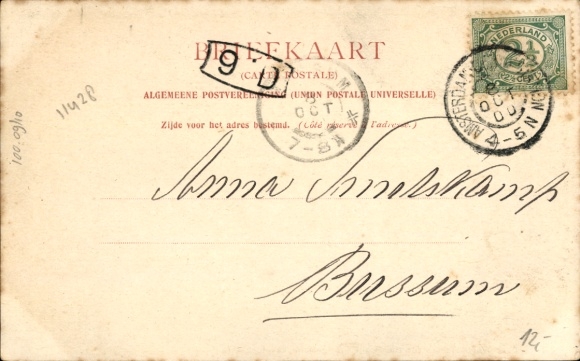 BRIEFKAART
(CARTE POSTALE)
ALGEMEENE POSTVEREENIGING (UNION POSTALE UNIVERSELLE)
Zijde voor het adres bestemd. (Côté réservé à l'adresse.)
NEDERLAND
2½
AMSTERDAM
OCT
00
4-5N
9 D
OCT
7-8N
11428
100.09/10
Anna Smelskamp
Bussum
12,-